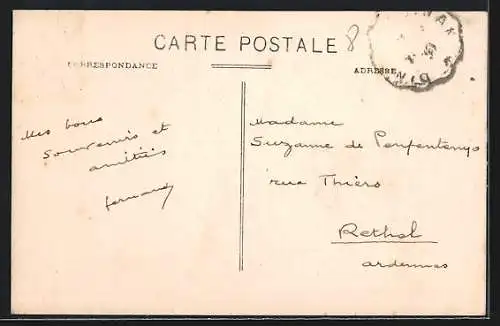 CARTE POSTALE
8
CORRESPONDANCE
ADRESSE
Mes bons
souvenirs et
amitiés
Fernand
Madame
Suzanne de Penfentenyo
rue Thiers
Rethel
ardennes